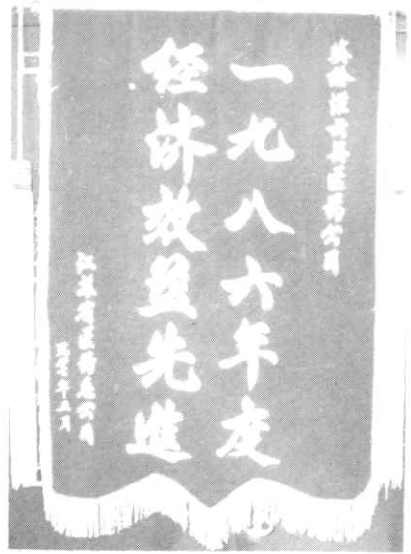 奖给涟水县医药公司
一九八六年度
经济效益先进
江苏省医药总公司
年五月